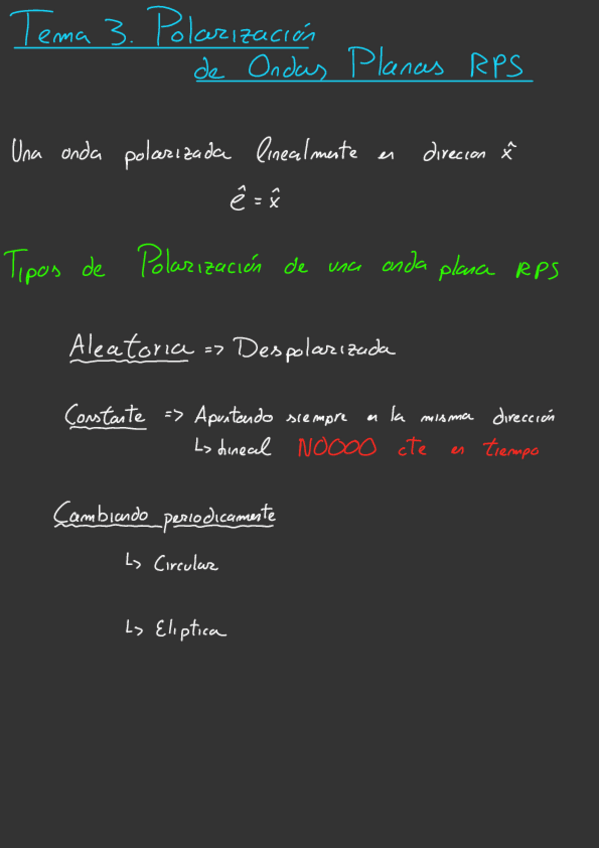 Tema 3. Polarización
de Ondas Planas RPS
Una onda polarizada linealmente en direcion x̂
ê = x̂
Tipos de Polarización de una onda plana RPS
Aleatoria => Despolarizada
Constante => Apuntando siempre en la misma dirección
↳ Lineal NOOOO cte en tiempo
Cambiando periodicamente
↳ Circular
↳ Eliptica